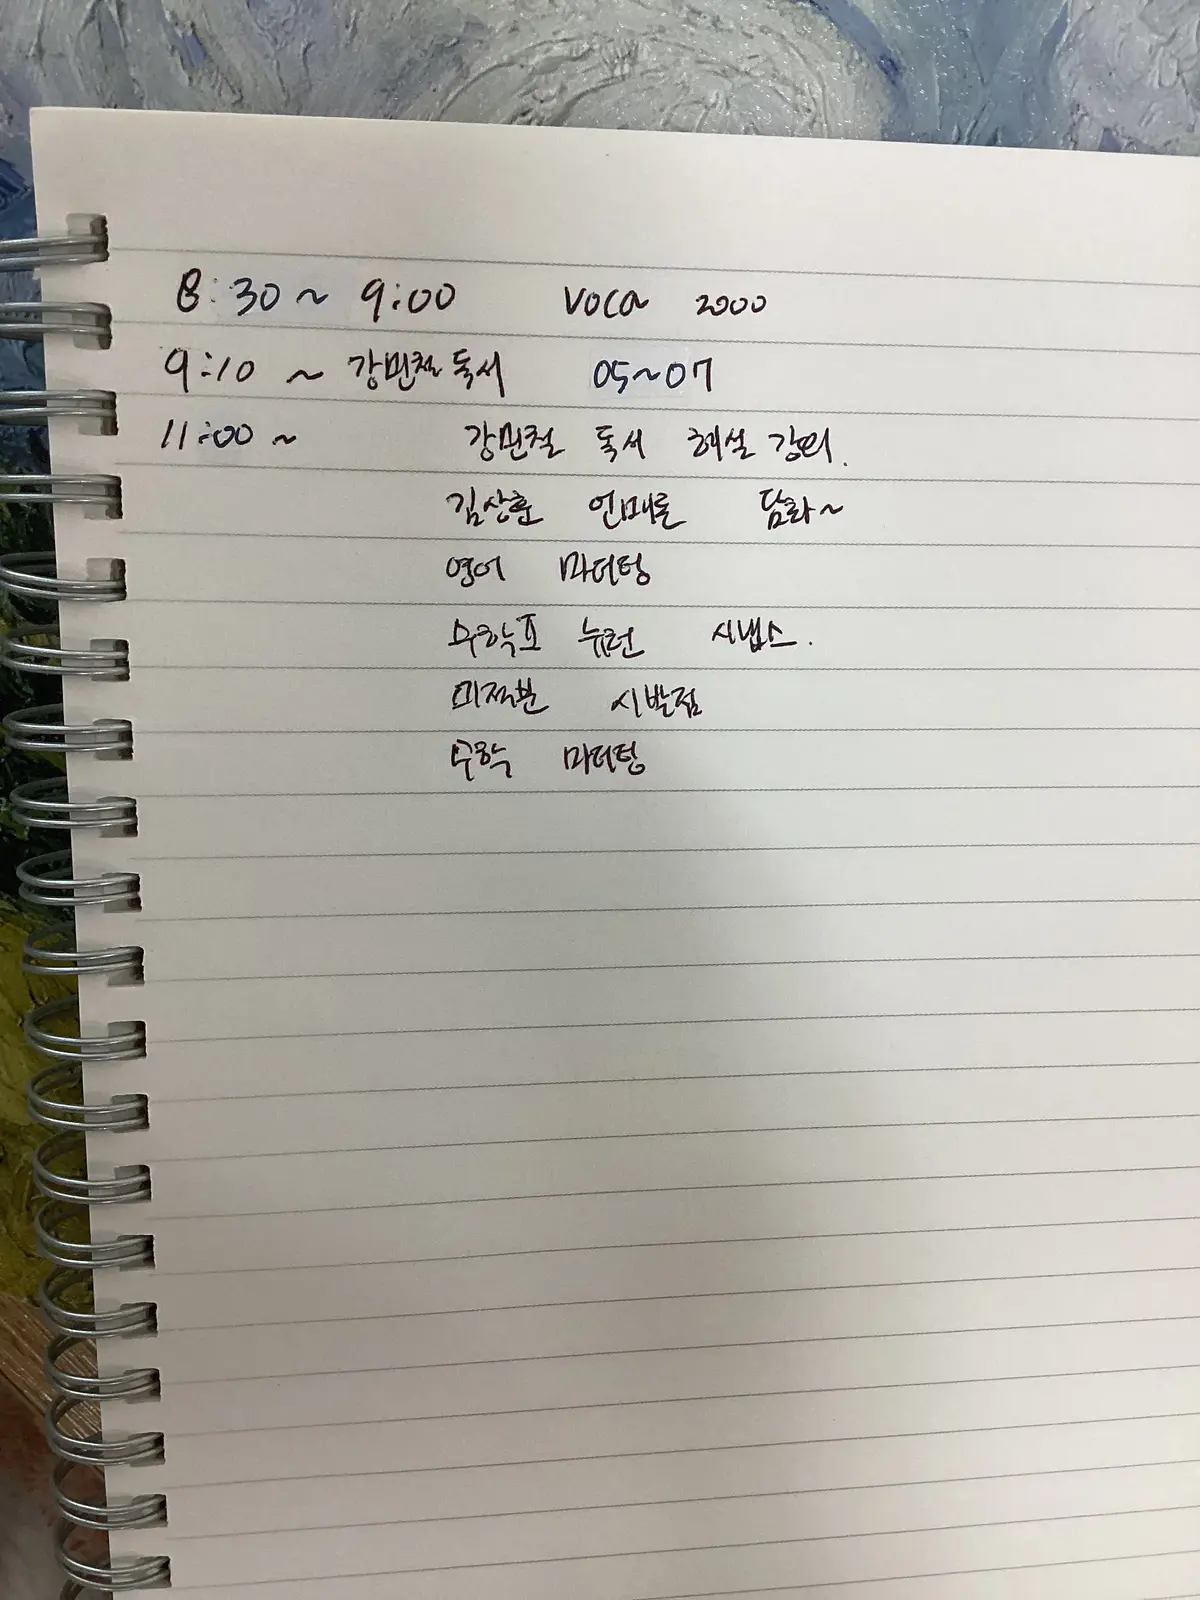 8:30 ~ 9:00 VOCA 2000
9:10 ~ 강민철 독서 05~07
11:00 ~ 강민철 독서 해설 강의.
김상훈 언매론 담화~
영어 마더텅
수학Ⅱ 뉴런 시냅스.
미적분 시발점
수학 마더텅